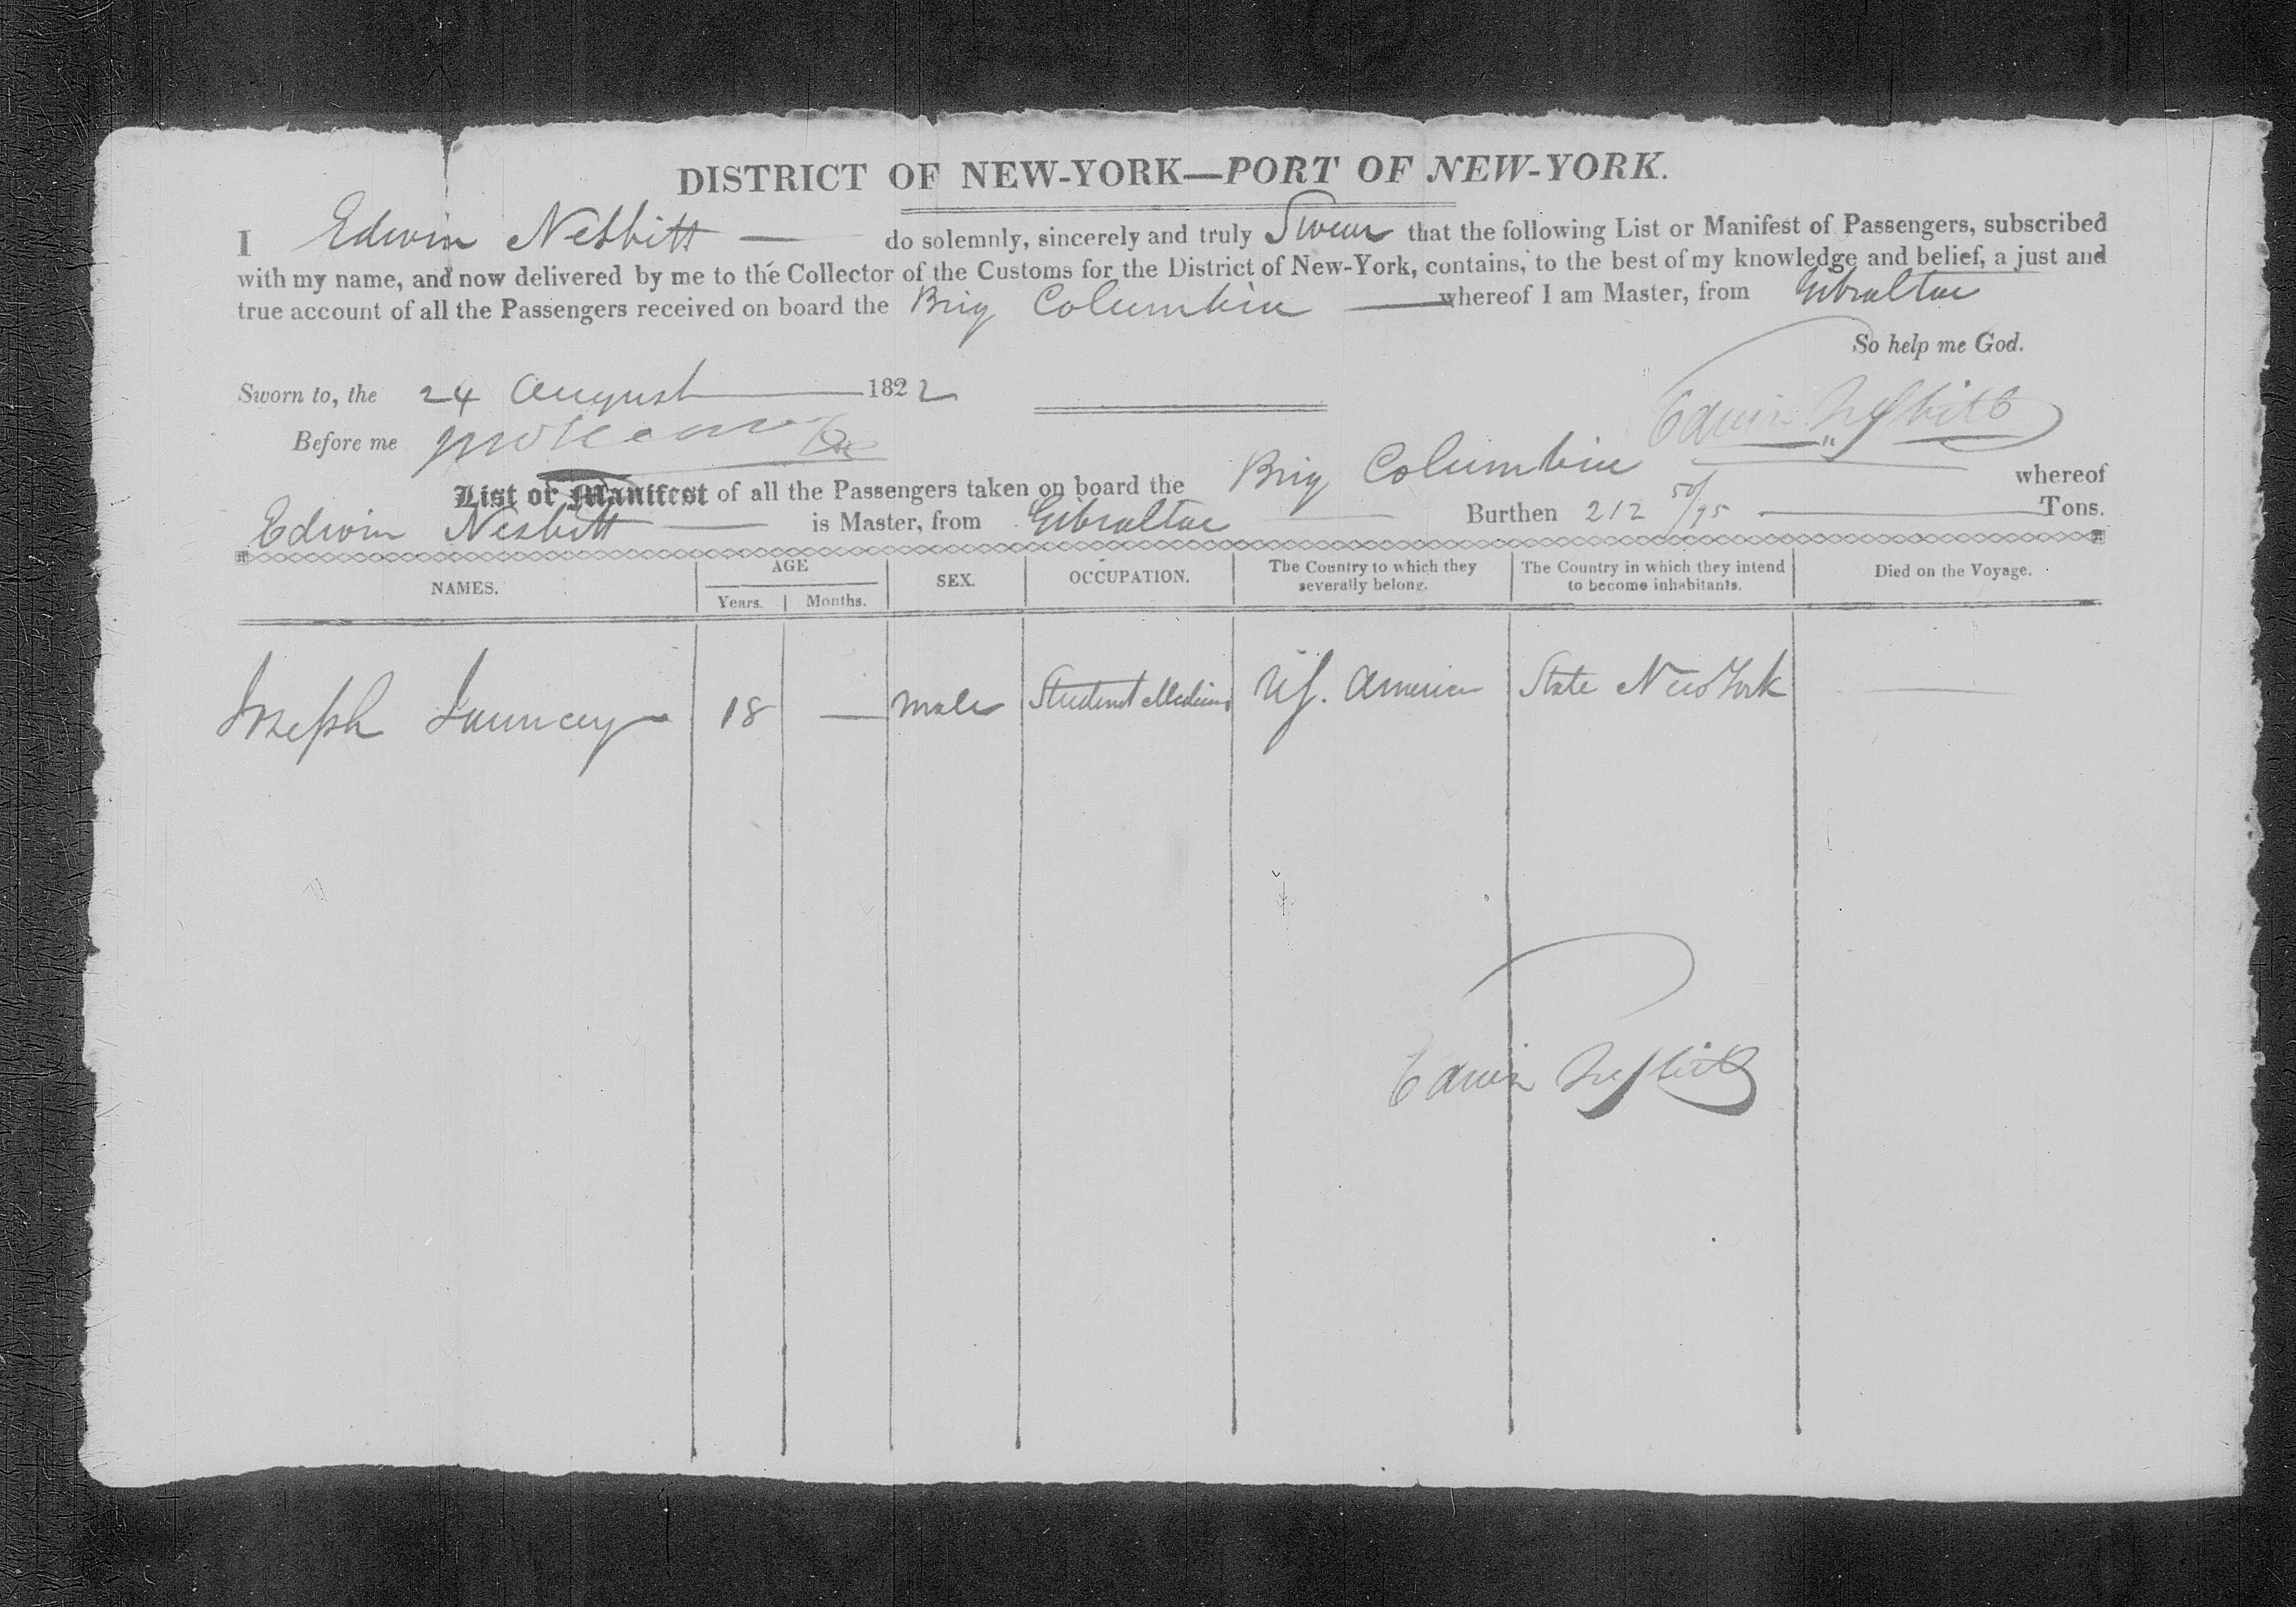 DISTRICT OF NEW-YORK—PORT OF NEW-YORK.
I Edwin Nesbitt — do solemnly, sincerely and truly Swear that the following List or Manifest of Passengers, subscribed
with my name, and now delivered by me to the Collector of the Customs for the District of New-York, contains, to the best of my knowledge and belief, a just and
true account of all the Passengers received on board the Brig Columbia — whereof I am Master, from Gibraltar
So help me God.
Sworn to, the 24 August 1822
Edwin Nesbitt
Before me
List or Manifest of all the Passengers taken on board the Brig Columbia — whereof
Edwin Nesbitt — is Master, from Gibraltar — Burthen 212 50/95 — Tons.
NAMES. AGE SEX. OCCUPATION. The Country to which they severally belong. The Country in which they intend to become inhabitants. Died on the Voyage.
Years. Months.
Joseph 18 — male Student Medicine U S. America State New York —
Edwin Nesbitt